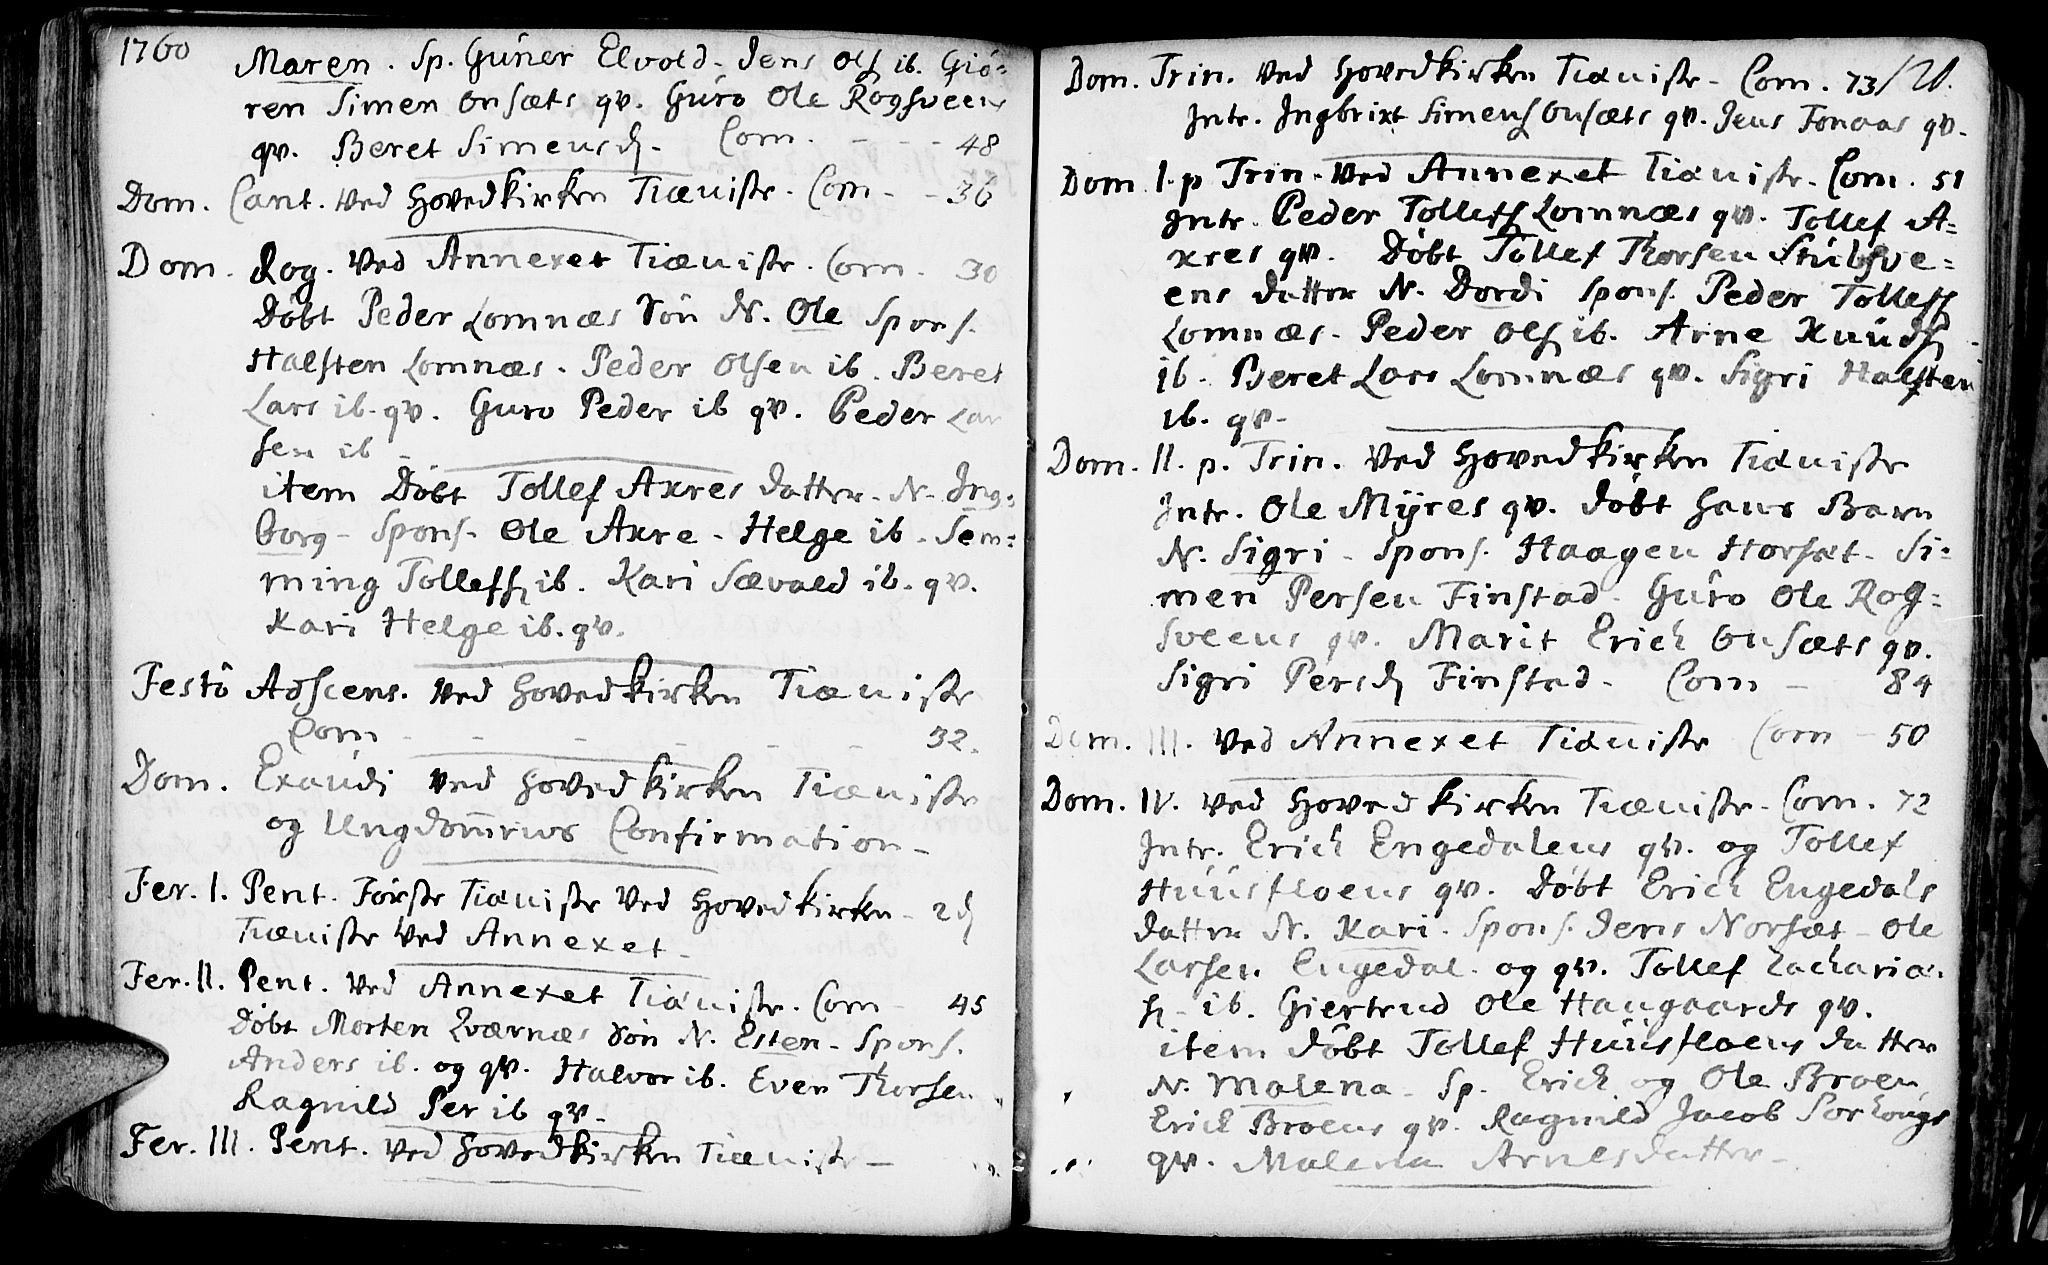 1760
Maren. Sp. Guner Elvold. Jens Ols ib. Giö=
ren Simen Onsæts qv. Guro Ole Rogsveens
qv. Beret Simensd. Com. - - - 48
Dom. Cant. ved Hovedkirken Tiæniste. Com - - 36
Dom. Rog. ved Annexet Tiæniste. Com. 30
Döbt Peder Lomnæs Sön N. Ole Spons.
Halsten Lomnæs. Peder Olsen ib. Beret
Lars ib. qv. Guro Peder ib qv. Peder Lar
sen ib -
item Döbt Tollef Axres datter. N. Ing=
borg - Spons. Ole Axre. Helge ib. Sem=
ming Tollefs ib. Kari Sævald ib. qv.
Kari Helge ib. qv.
Festo Adscens. ved Hovedkirken Tiæniste
Com - - - - - - 32.
Dom. Exaudi ved Hovedkirken Tiæniste
og Ungdommens Confirmation -
Fer. I. Pent. Förste Tiæniste ved Hovedkirken - 2d
Tiæniste ved Annexet -
Fer. II. Pent. ved Annexet Tiæniste. Com - 45
Döbt Morten Qværnæs Sön N. Esten - Spons.
Anders ib. og qv. Halvor ib. Even Thorsen
Ragnild Per ib qv -
Fer. III. Pent. ved Hovedkirken Tiæniste -
Dom. Trin. ved Hovedkirken Tiæniste - Com. 73/
Intr. Ingbrixt Simens Onsæts qv. Jens Fonaas qv.
Dom. I. p Trin. ved Annexet Tiæniste. Com. 51
Intr. Peder Tollefs Lomnæs qv. Tollef A=
xres qv. Döbt Tollef Thorsen Stubsve=
ens datter N. Dordi Spons. Peder Tollefs
Lomnæs. Peder Ols ib. Arne Knuds
ib. Beret Lars Lomnæs qv. Sigri Halsten
ib. qv -
Dom. II. p. Trin. ved Hovedkirken Tiæniste
Intr. Ole Myres qv. döbt hans Barn
N. Sigri - Spons. Haagen Horsæt. Si=
men Persen Finstad. Guro Ole Rog=
sveens qv. Marit Erich Onsæts qv.
Sigri Persd Finstad - Com - 84
Dom. III. ved Annexet Tiæniste Com - 50
Dom. IV. ved Hovedkirken Tiæniste - Com. 72
Intr. Erich Engedalens qv. og Tollef
Huusfloens qv. Döbt Erich Engedals
datter N. Kari. Spons. Jens Norsæt - Ole
Larsen Engedal. og qv. Tollef Zacharia.
s. ib. Giertrud Ole Haugaards qv.
item döbt Tollef Huusfloens datter
N. Malena - Sp. Erich og Ole Broen
Erich Broens qv. Ragnild Jacob Sorhougs
qv. Malena Arnesdatter -